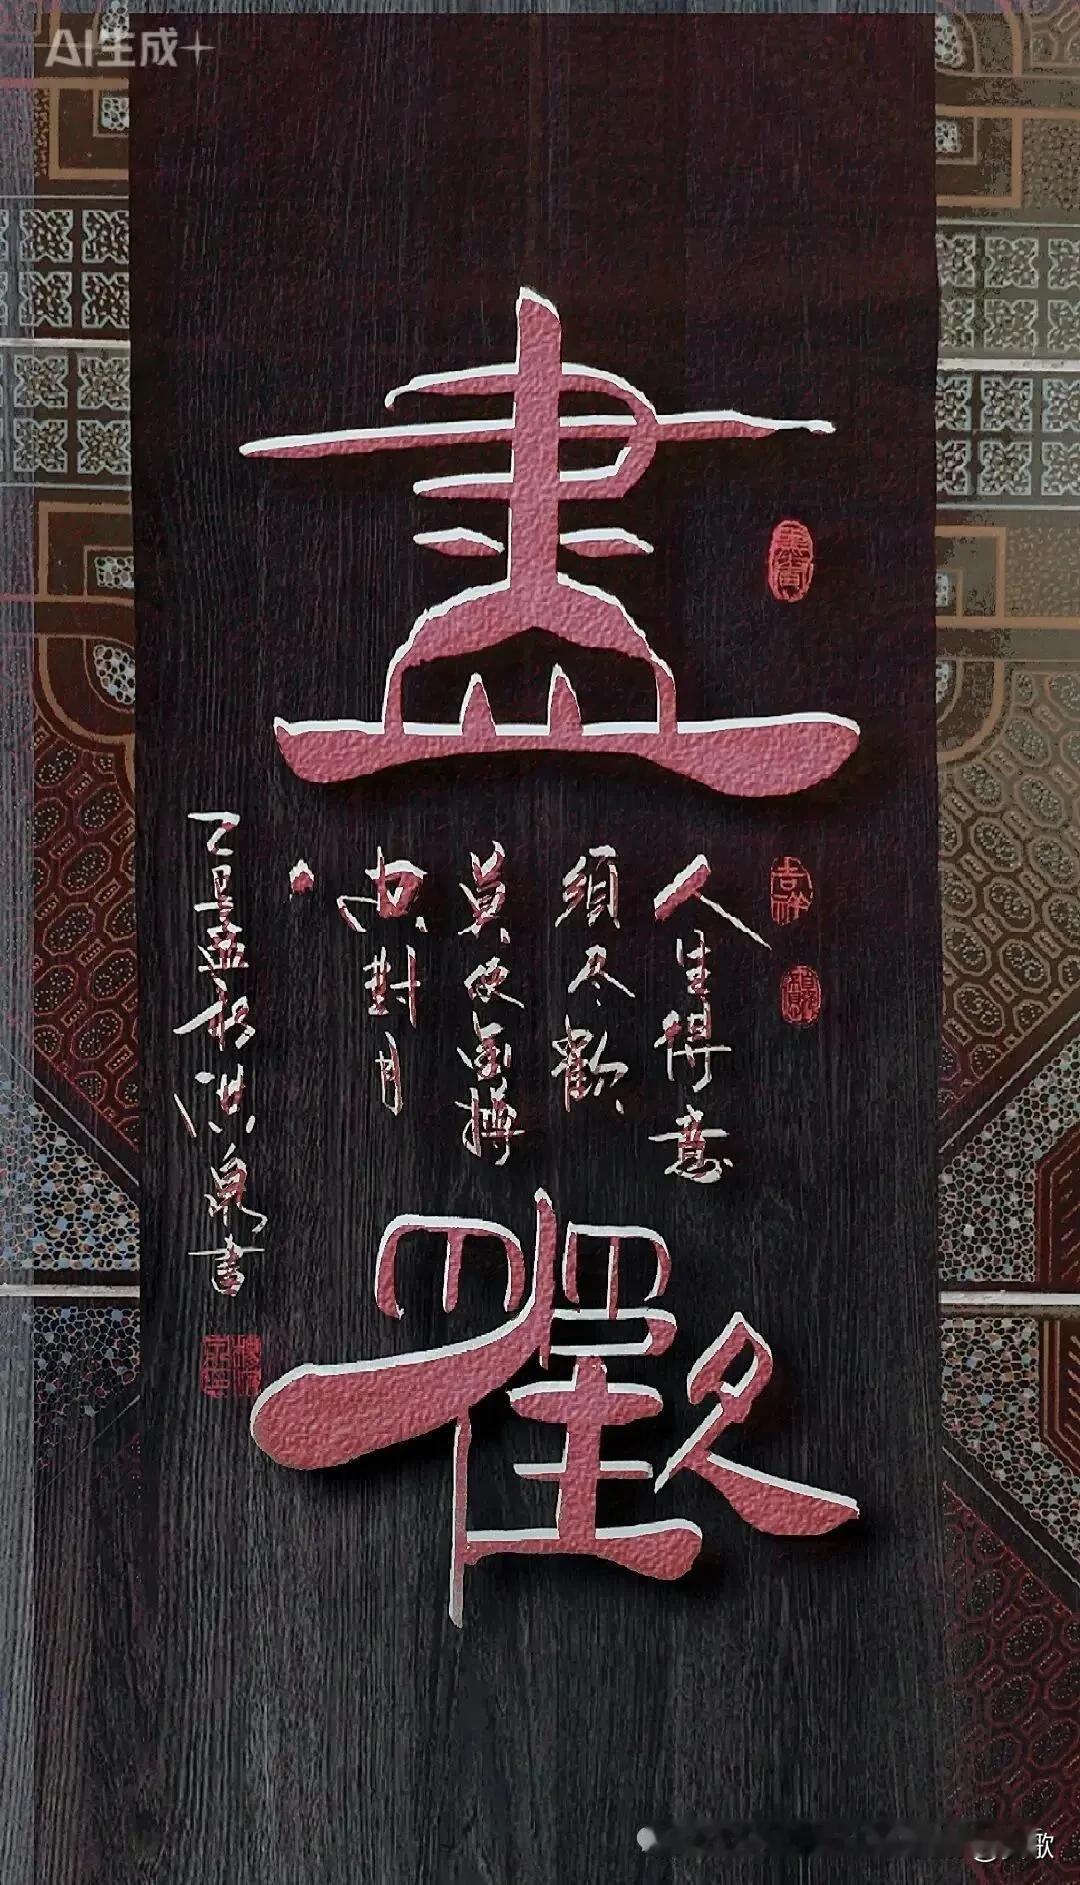 AI生成
盡歡
人生得意
須尽歡
莫使金樽
空對月
乙巳孟秋洪泉書
吉祥
歌